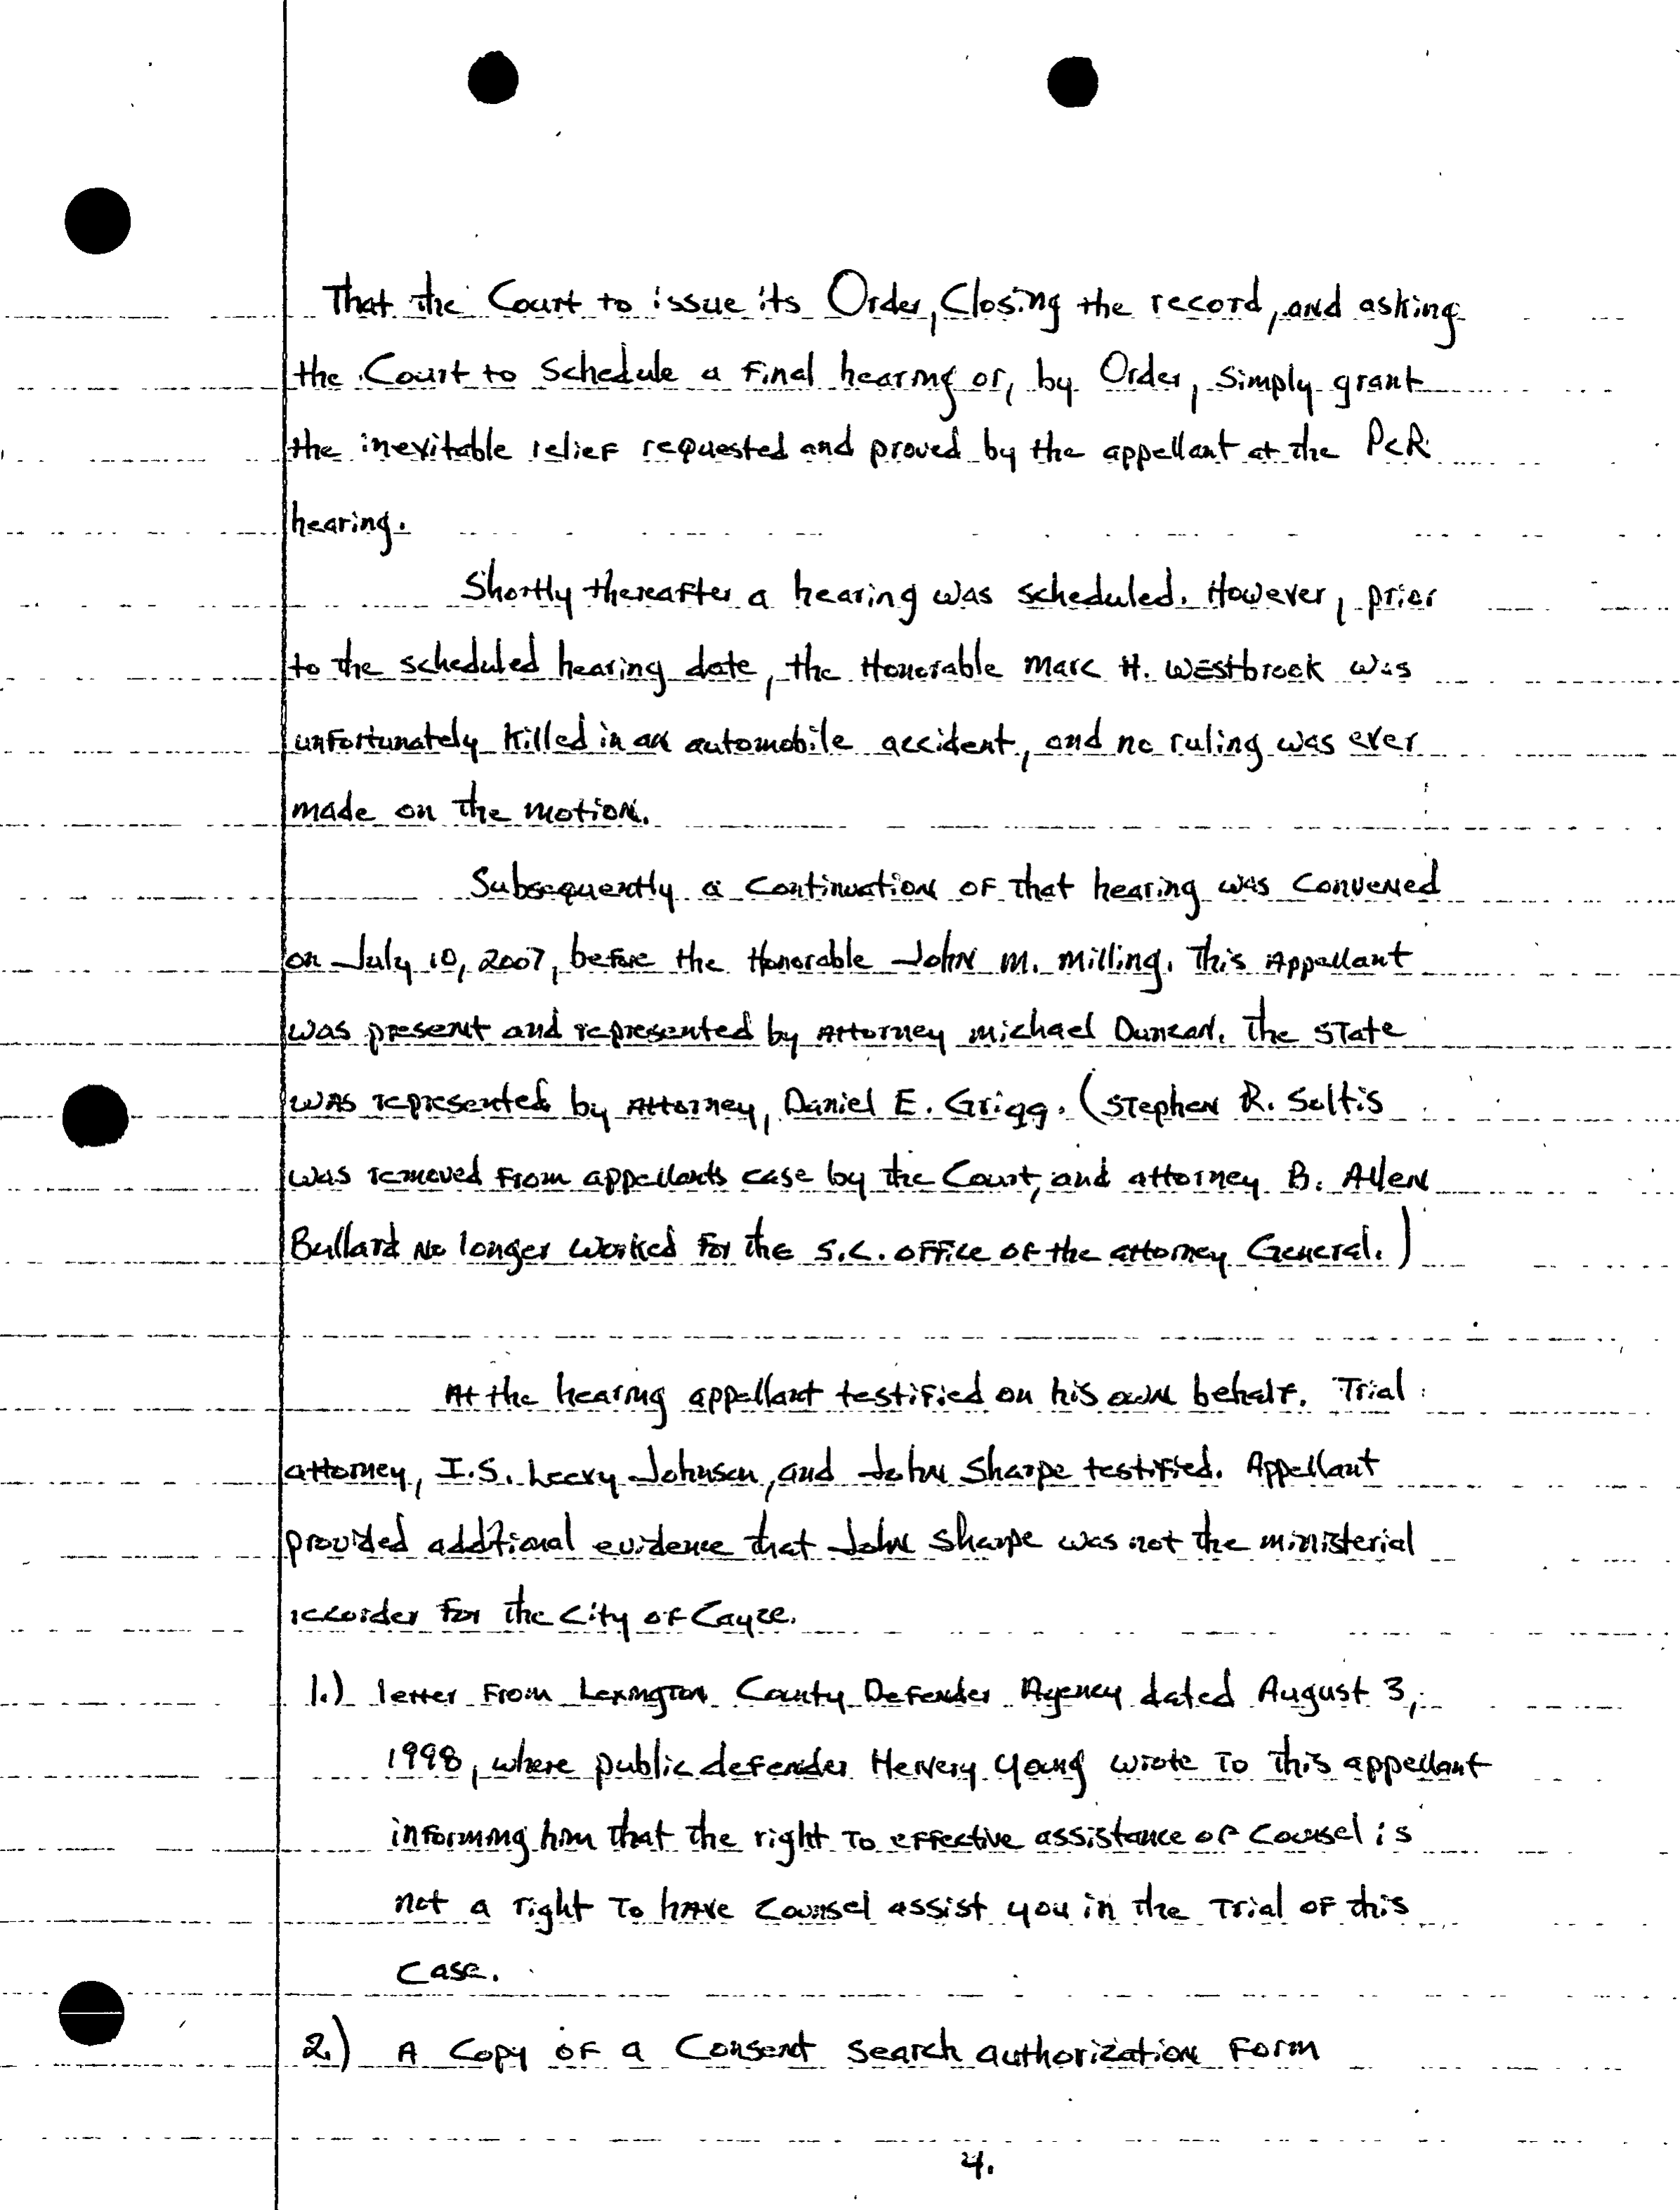 That the Court to issue its Order, Closing the record, and asking
the Court to Schedule a Final hearing or, by Order, Simply grant
the inevitable relief requested and proved by the appellant at the PCR
hearing.
Shortly thereafter a hearing was scheduled. However, prior
to the scheduled hearing date, the Honorable Marc H. Westbrook was
unfortunately killed in an automobile accident, and no ruling was ever
made on the motion.
Subsequently a Continuation of that hearing was Convened
on July 10, 2007, before the Honorable John M. Milling. This Appellant
was present and represented by Attorney Michael Duncan. The State
was represented by Attorney, Daniel E. Grigg. (Stephen R. Soltis
was removed from appellants case by the Court, and attorney B. Allen
Bullard no longer worked for the S.C. office of the attorney General.)
At the hearing appellant testified on his own behalf. Trial
attorney, I.S. Leevy Johnson, and John Sharpe testified. Appellant
provided addtional evidence that John Sharpe was not the ministerial
recorder for the City of Cayce.
1.) letter From Lexington County Defender Agency dated August 3,
1998, where public defender Hervery Young wrote to this appellant
informing him that the right to effective assistance of Counsel is
not a right to have Counsel assist you in the Trial of this
Case.
2.) A Copy of a Consent Search authorization Form
4.